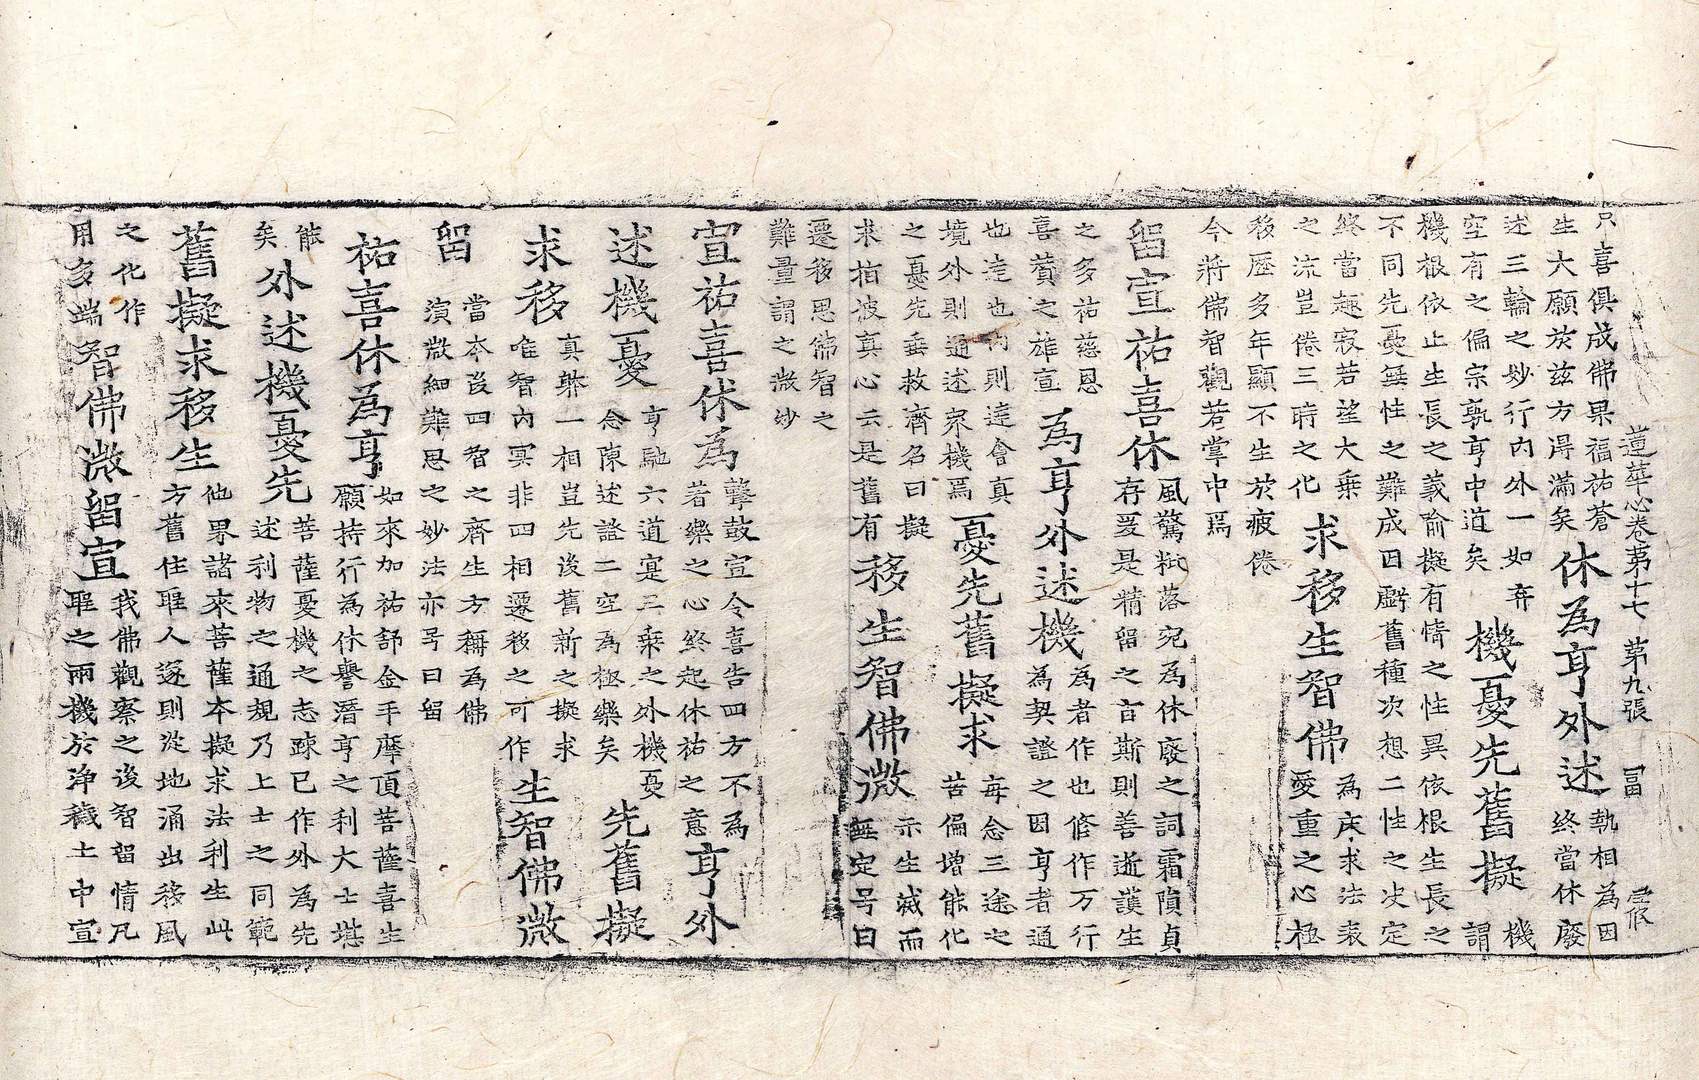 蓮華心卷第十七 第九張 冨
只喜俱成佛果福祐蒼
生大願於茲方得滿矣
休為亨外述
執相為因
終當休廢
述三輪之妙行內外一如弃
空有之偏宗孰亨中道矣
機憂先舊擬
機
謂
機根依止生長之義喻擬有情之性異依根生長之
不同先憂無性之難成因虧舊種次想二性之决定
終當趣寂若望大乗
之流豈倦三時之化
求移生智佛
為床求法表
愛重之心極
移歷多年顯不生於疲倦
今將佛智觀若掌中焉
留宣祐喜休
風驚籜落宛為休廢之詞霜隕貞
存爰是精留之言斯則善逝護生
之多祐慈恩
喜賛之雄宣
為亨外述機
為者作也修作万行
為契證之因亨者通
也達也內則達會真
境外則通述衆機焉
憂先舊擬求
每念三途之
苦偏增能化
之憂先垂救濟名曰擬
求指彼真心云是舊有
移生智佛微
示生滅而
無定号曰
遷移思佛智之
難量謂之微妙
宣祐喜休為
聲鼓宣令喜告四方不為
著樂之心終起休祐之意
亨外
述機憂
亨馳六道寔三乗之外機憂
念陳述證二空為極樂矣
先舊擬
求移
真躰一相豈先後舊新之擬求
唯智內冥非四相遷移之可作
生智佛微
留
當本發四智之齊生方稱為佛
演微細難思之妙法亦号曰留
祐喜休為亨
如來加祐舒金手摩頂菩薩喜生
願持行為休譽潛亨之利大士堪
能
矣
外述機憂先
菩薩憂機之志踈已作外為先
述利物之通規乃上士之同範
舊擬求移生
他界諸來菩薩本擬求法利生此
方舊住聖人遂則從地涌出移風
之化作
用多端
智佛微留宣
我佛觀察之後智留情凡
聖之兩機於淨穢土中宣